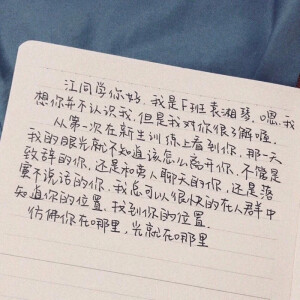 江同学你好,我是F班袁湘琴,嗯,我
想你并不认识我,但是我对你很了解喔.
从第一次在新生训练上看到你,那一天
我的眼光就不知道该怎么离开你,不管是
致辞的你,还是和旁人聊天的你,还是落
寞不说话的你,我总可以很快的在人群中
知道你的位置,找到你的位置.
彷佛你在哪里,光就在哪里